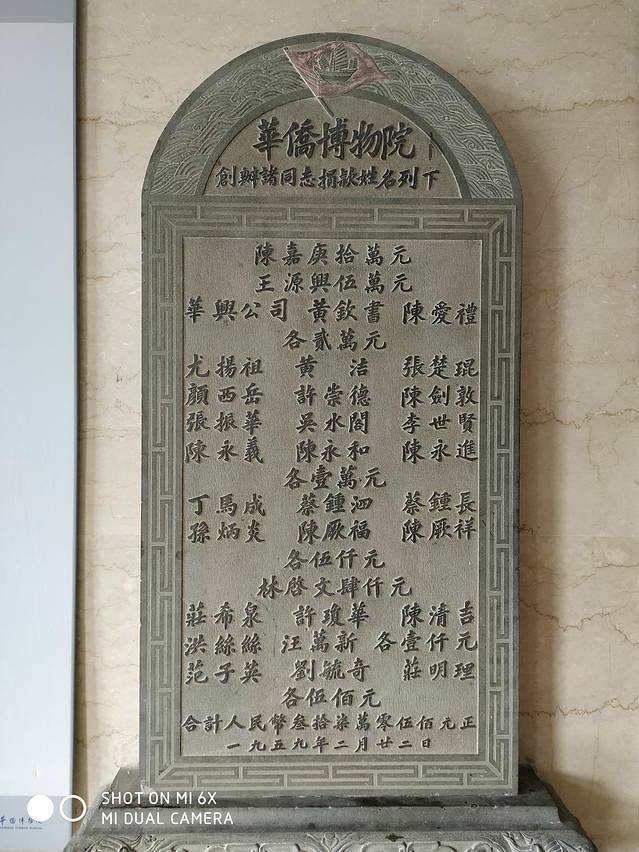 華僑博物院
創辦諸同志捐款姓名列下
陳嘉庚拾萬元
王源興伍萬元
華興公司 黃欽書 陳愛禮
各貳萬元
尤揚祖 黃洁 張楚琨
顏西岳 許崇德 陳劍敦
張振華 吳水閣 李世賢
陳永義 陳永和 陳永進
各壹萬元
丁馬成 蔡鍾泗 蔡鍾長
孫炳炎 陳厥福 陳厥祥
各伍仟元
林啓文肆仟元
莊希泉 許瓊華 陳清吉
洪絲絲 汪萬新 各壹仟元
范子英 劉毓奇 莊明理
各伍佰元
合計人民幣叁拾柒萬零伍佰元正
一九五九年二月廿二日
華僑博物院
SHOT ON MI 6X
MI DUAL CAMERA